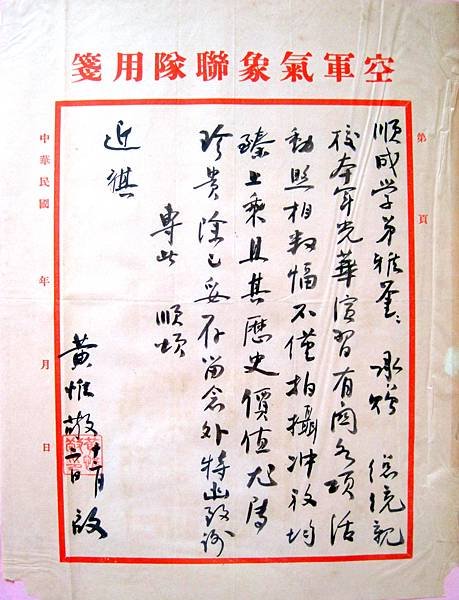 空軍氣象聯隊用箋
第 頁
順成学弟雅鑒：承贈 總統親
校本軍光華演習有関各項活
動照相数幅不僅拍攝冲放均
臻上乘且其歷史價值尤属
珍貴除已妥存留念外特函致謝
專此 順頌
近祺
黃惟敬 啟
中華民國 年 月 日